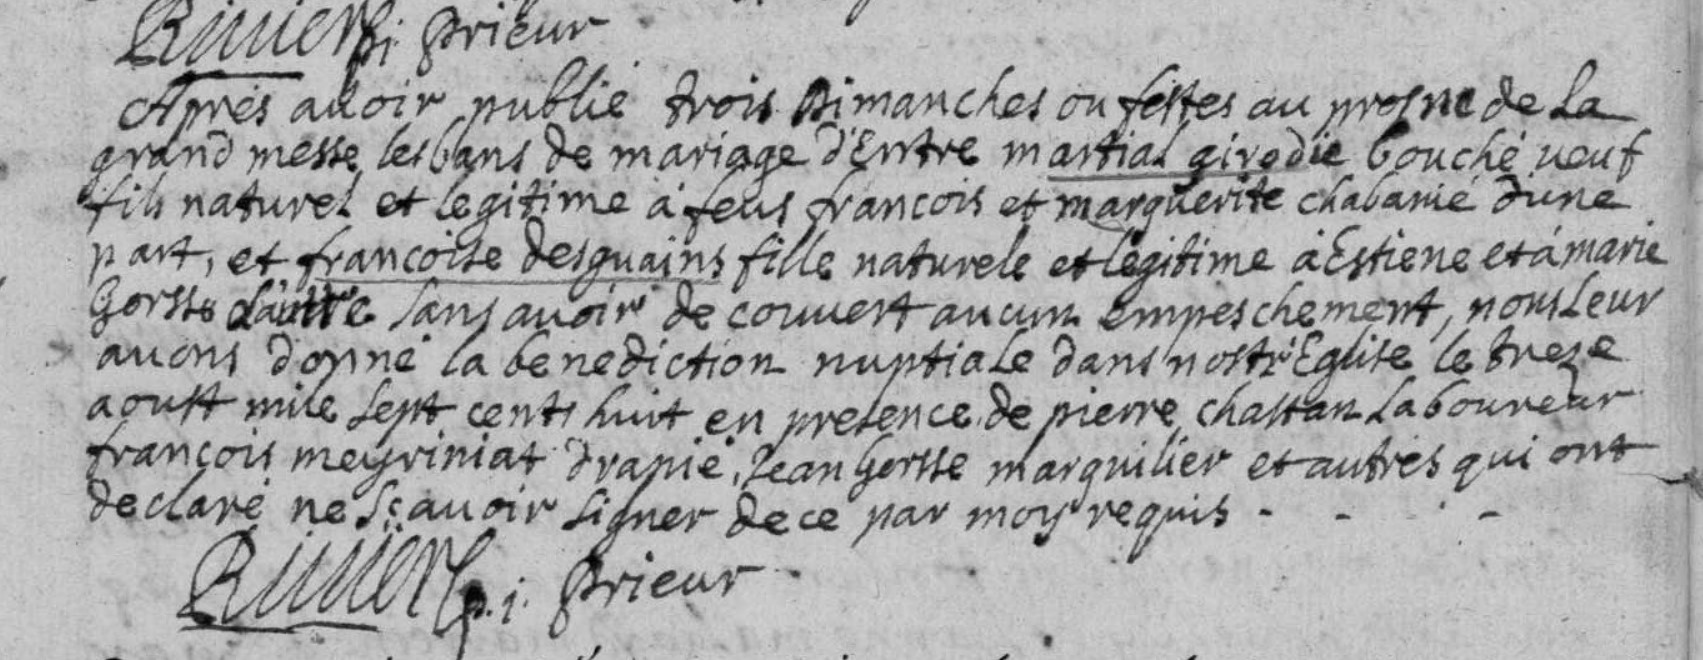 Riviere p. j. prieur
Aprés auoir publié trois Dimanches ou festes au prosne de La
grand messe les bans de mariage d'Entre martial girodie bouché ueuf
fils naturel et legitime á feus francois et marguerite chabanié d'une
part, et francoise desguains fille naturele et legitime á Estiene et á marie
Gorsse d'autre sans auoir de couuert aucun Empeschement, nous Leur
auons donné la benediction nuptiale dans nostr'Eglise le treze
aoust mile sept cents huit en presence de pierre chastan Laboureur
francois meyriniat drapié, Jean Gorsse marguilier et autres qui ont
declaré ne sçauoir signer de ce par moy requis - - -
Riviere p. j. prieur